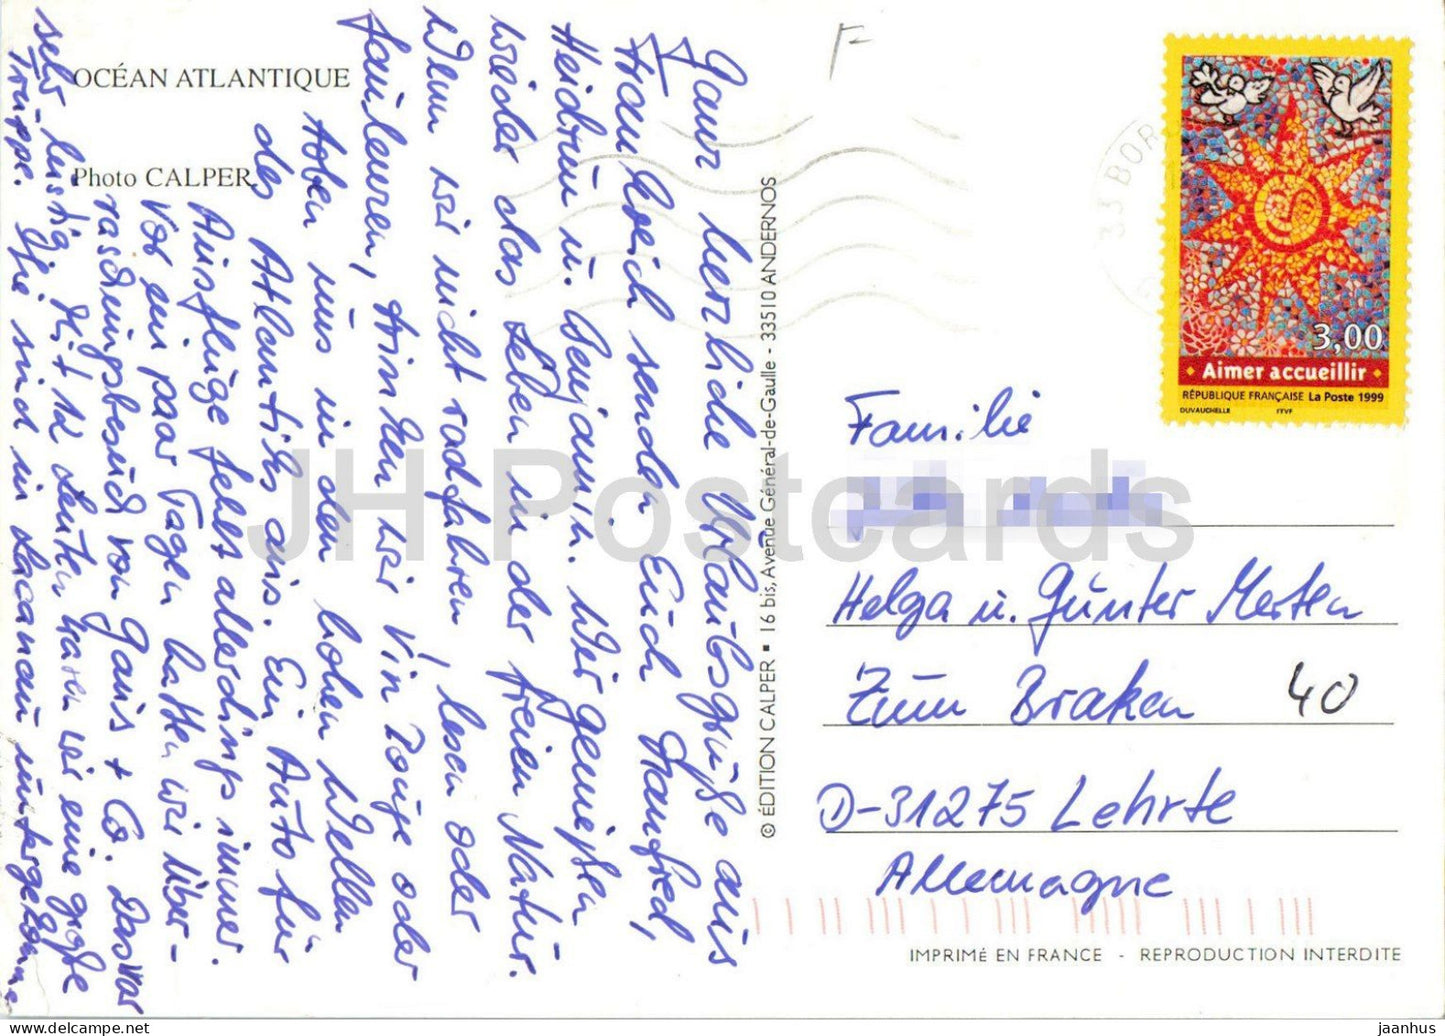 OCÉAN ATLANTIQUE
Photo CALPER
Ganz herzliche Urlaubsgrüße aus
Frankreich senden Euch Manfred,
Heidrun u. Benjamin. Wir genießen
wieder das Leben in der freien Natur.
Wenn wir nicht radfahren, lesen oder
faulenzen, trinken wir Vin Rouge oder
toben uns in den hohen Wellen
des Atlantiks aus. Ein Auto für
Ausflüge fehlt allerdings immer.
Vor ein paar Tagen hatten wir Über-
raschungsbesuch von Ganis + Co. Das war
sehr lustig. Mit 12 Leuten waren wir eine große
Truppe. Sie sind in Lacanau
© ÉDITION CALPER ▪ 16 bis, Avenue Général-de-Gaulle - 33510 ANDERNOS
33 BOR
3,00
Aimer accueillir
RÉPUBLIQUE FRANÇAISE La Poste 1999
DUVAUCHELLE ITVF
Familie
Helga u. Günter Merten
Zum Braken 40
D-31275 Lehrte
Allemagne
IMPRIMÉ EN FRANCE - REPRODUCTION INTERDITE
JH Postcards
jaanhus